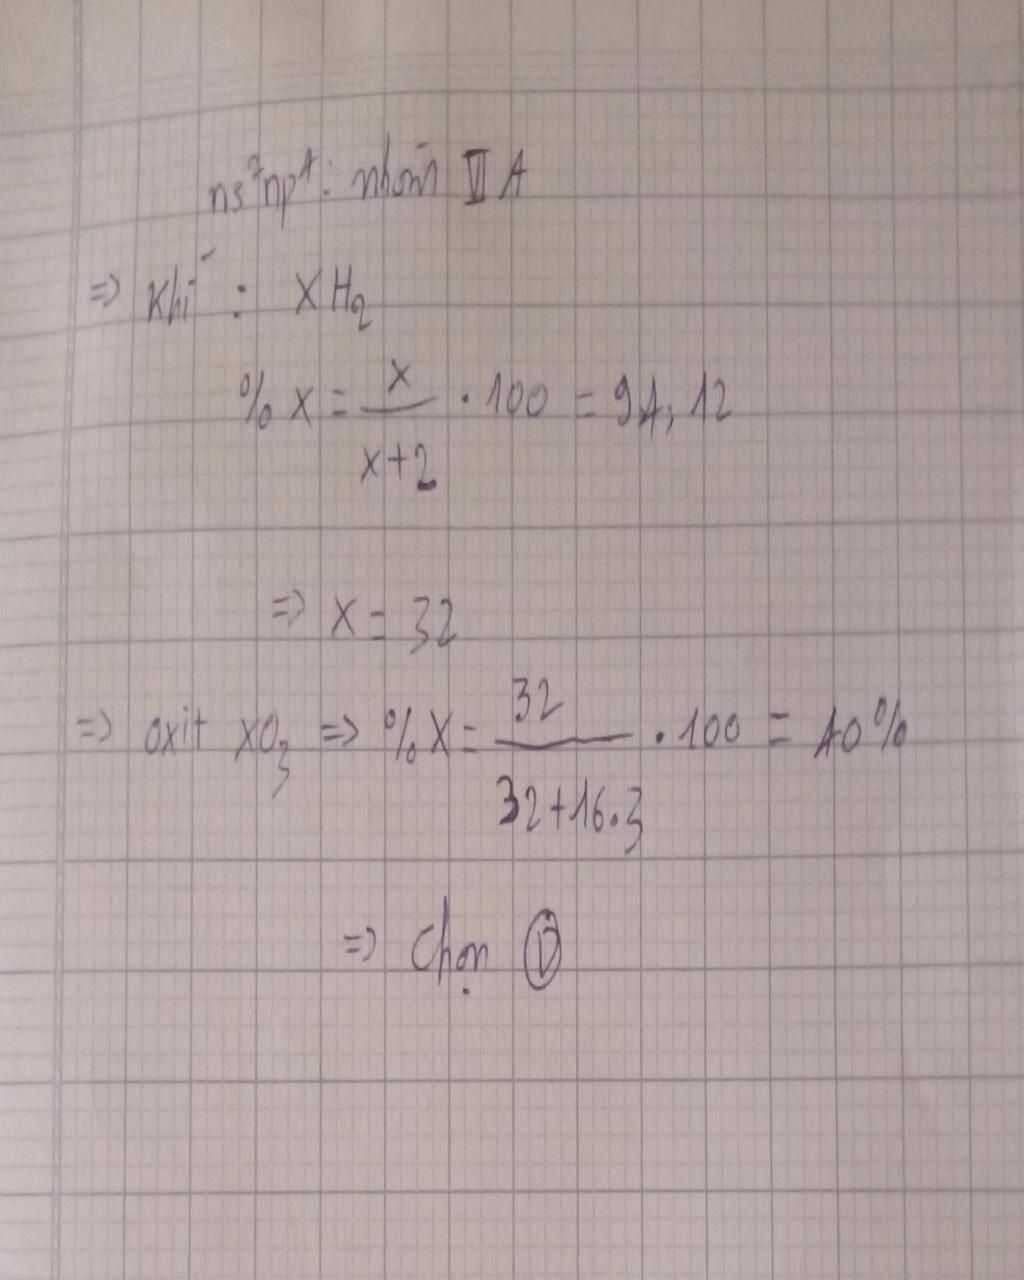 ns²np⁴: nhóm VI A
=> Khí : XH₂
% X = x / x+2 . 100 = 94,12
=> X = 32
=> oxit XO₃ => % X = 32 / 32+16.3 . 100 = 40%
=> Chọn D